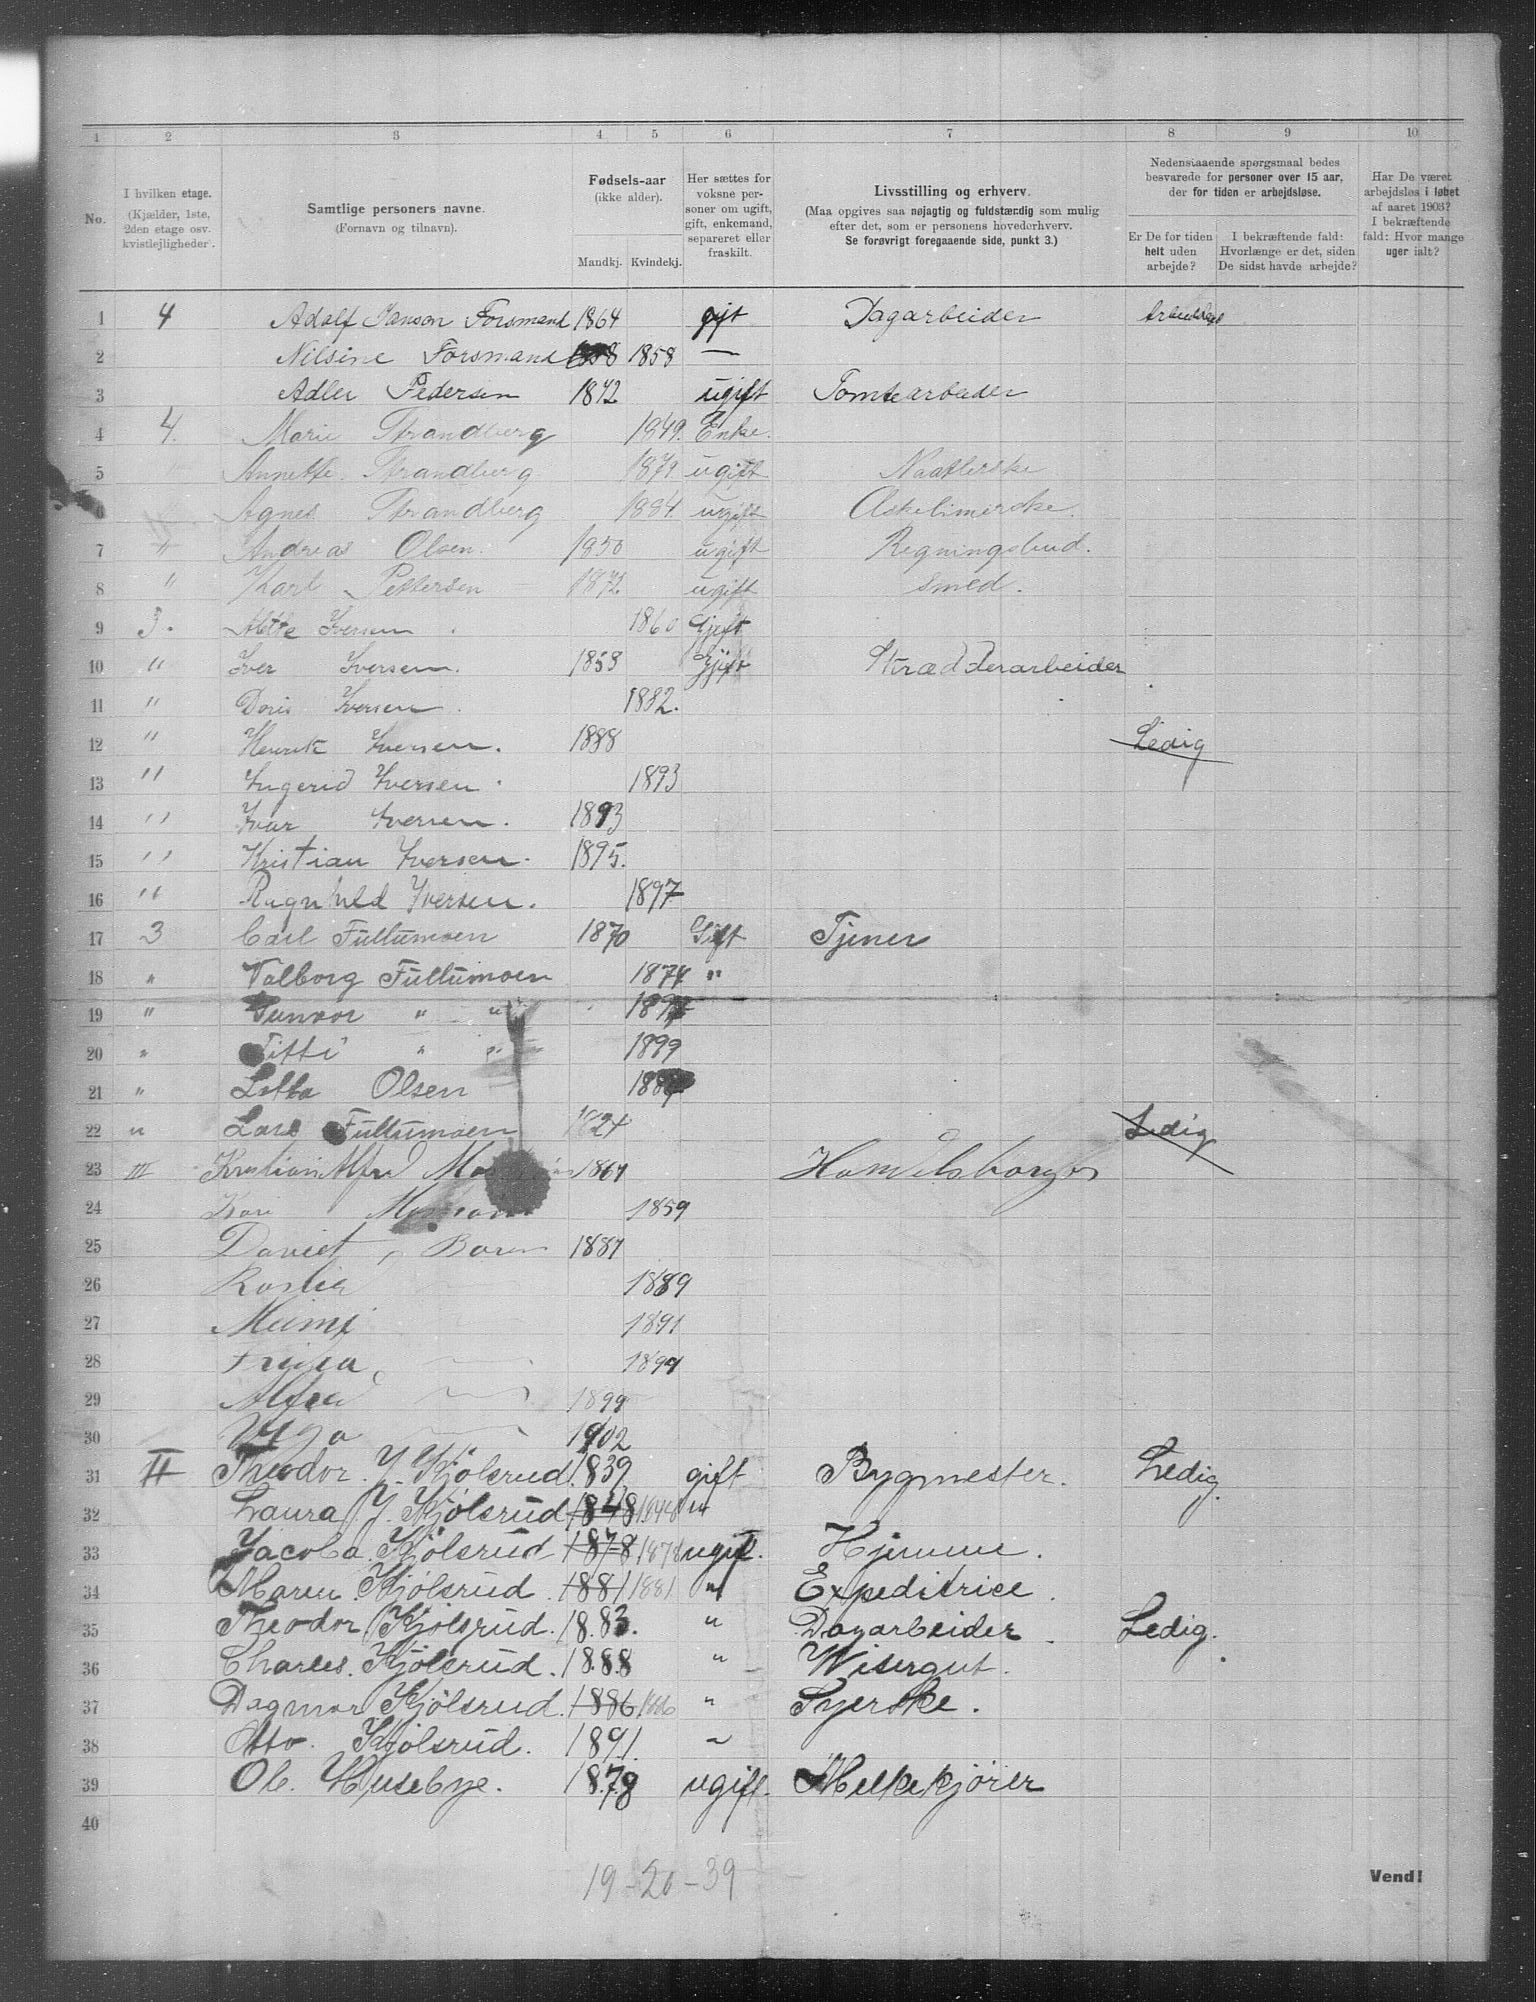 1 2 3 4 5 6 7 8 9 10
No.
I hvilken etage. (Kjælder, 1ste, 2den etage osv. kvistleiligheder.)
Samtlige personers navne. (Fornavn og tilnavn).
Fødsels-aar (ikke alder). Mandkj. Kvindekj.
Her sættes for voksne personer om ugift, gift, enkemand, separeret eller fraskilt.
Livsstilling og erhverv. (Maa opgives saa nøjagtig og fuldstændig som mulig efter det, som er personens hovederhverv. Se forøvrigt foregaaende side, punkt 3.)
Nedenstaaende spørgsmaal bedes besvarede for personer over 15 aar, der for tiden er arbejdsløse.
Er De for tiden helt uden arbejde?
I bekræftende fald: Hvorlænge er det, siden De sidst havde arbejde?
Har De været arbejdsløs i løbet af aaret 1903? I bekræftende fald: Hvor mange uger ialt?
1 4 Adolf Janson Forsmand 1864 gift Dagarbeider
2 Nilsine Forsmand 1858 1858 —
3 Adler Pedersen 1872 ugift Tomtearbeder
4 4. Marie Strandberg 1849. Enke.
5 Annette Strandberg 1879 ugift Naatlerske
6 Agnes Strandberg 1884 ugift Æskelimerske.
7 " Andreas Olsen. 1850 ugift Regningsbud.
8 " Karl Pettersen 1872 ugift smed.
9 3. Mette Iversen 1860 Gjeft
10 " Iver Iversen. 1858 Gjift Skrædderarbeider
11 " Doris Iversen. 1882.
12 " Henrik Iversen. 1888 Ledig
13 " Ingerid Iversen. 1893
14 " Ivar Iversen. 1893
15 " Kristian Iversen. 1895.
16 " Ragnhild Iversen. 1897
17 3 Carl Fullumoen 1870 Gift Tjener
18 " Valborg Fullumoen 1874 "
19 " Gunvor " " 1897
20 " Titti " " 1899
21 " Lotta Olsen
22 " Lars Fullumoen 1824 Ledig
23 III Kristian Alfred 1861 Handelsborger
24 Kari 1859
25 Daniel, Barn 1887
26 1889
27 Mimi 1891
28 1894
29 Alfred 1899
30 1902
31 II Theodor. J. Kjölsrud. 1839 gift Bygmester. Ledig.
32 Laura J. Kjölsrud 1848 1848 "
33 Jacoba. Kjölsrud 1878 1878 ugift. Hjemme.
34 Maren Kjölsrud. 1881 1881 " Expeditrice.
35 Theodor. Kjölsrud. 1883. " Dagarbeider. Ledig.
36 Charles. Kjölsrud. 1888 " Wisergut.
37 Dagmar Kjölsrud. 1886. 1886 " Syerske.
38 Otto. Kjölsrud. 1891. "
39 Ole. Husebye. 1878 ugift. Melkekjörer
40
19 - 20 - 39
Vend!